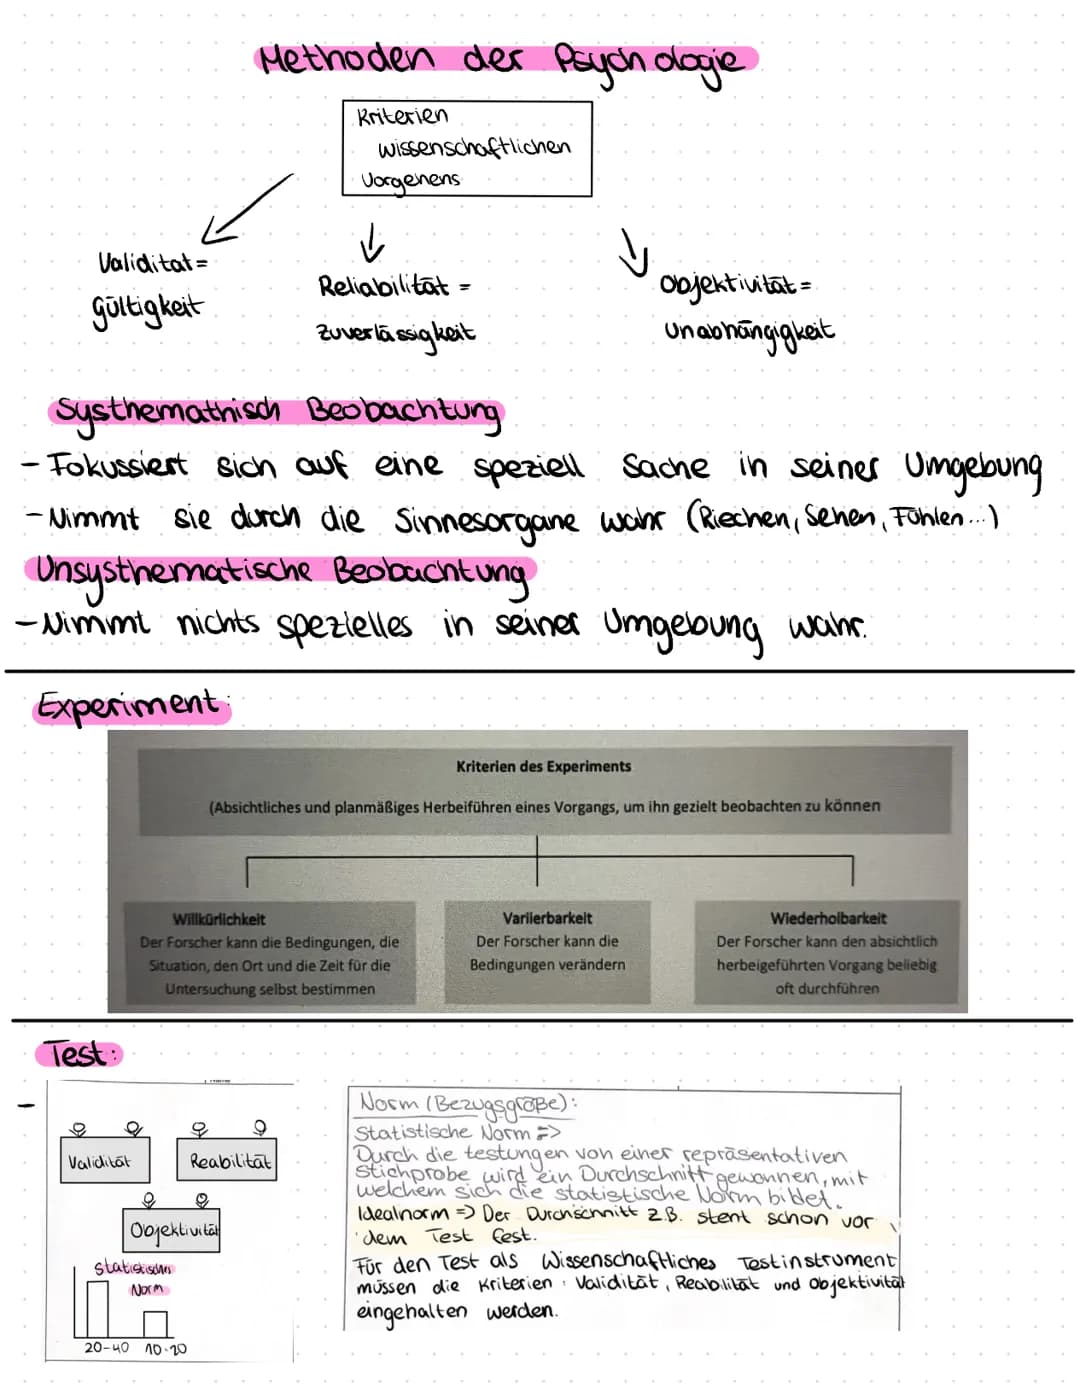 Methoden der Psychologie
Kriterien
wissenschaftlichen
Vorgehens
Validitat =
gültigkeit
Reliabilität =
Zuverlässigkeit
Objektivität =
Unabhängigkeit
Systhemathisch Beobachtung
- Fokussiert sich auf eine speziell Sache in seiner Umgebung
- Nimmt sie durch die Sinnesorgane wahr (Riechen, Sehen, Fühlen...)
Unsysthematische Beobachtung
- Nimmt nichts spezielles in seiner Umgebung wahr.
Experiment:
Kriterien des Experiments
(Absichtliches und planmäßiges Herbeiführen eines Vorgangs, um ihn gezielt beobachten zu können
Willkürlichkeit
Der Forscher kann die Bedingungen, die
Situation, den Ort und die Zeit für die
Untersuchung selbst bestimmen
Variierbarkeit
Der Forscher kann die
Bedingungen verändern
Wiederholbarkeit
Der Forscher kann den absichtlich
herbeigeführten Vorgang beliebig
oft durchführen
Test:
-
Validität
Reabilität
Objektivität
Statistische
Norm
20-40 10-20
Norm (Bezugsgröße):
Statistische Norm =>
Durch die testungen von einer repräsentativen
Stichprobe wird ein Durchschnitt gewonnen, mit
welchem sich die statistische Norm bildet.
Idealnorm => Der Durchschnitt z.B. steht schon vor
dem Test fest.
Für den Test als Wissenschaftliches Testinstrument
müssen die Kriterien: Validität, Reabilität und Objektivität
eingehalten werden.